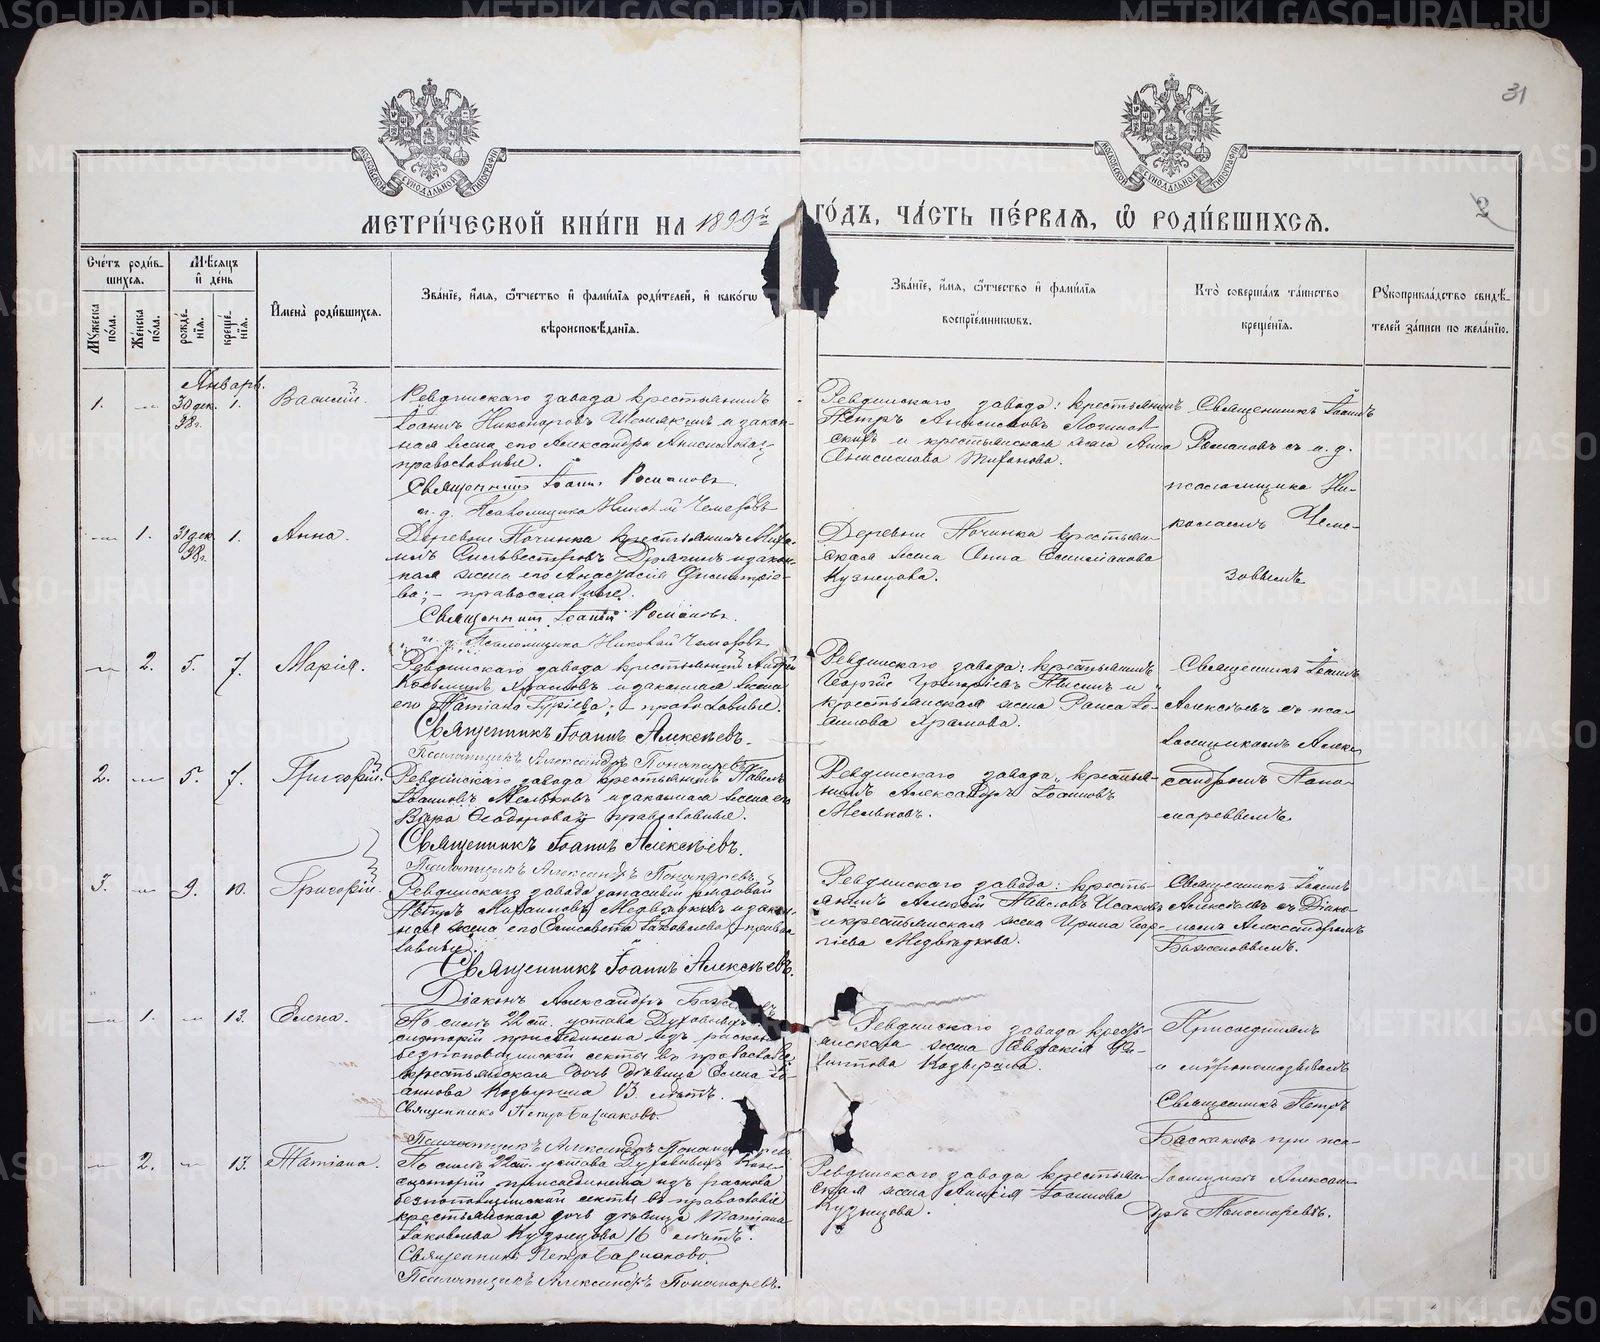 31
2
МОСКОВСКОЙ СѴНОДАЛЬНОЙ ТИПОГРАФІИ
МОСКОВСКОЙ СѴНОДАЛЬНОЙ ТИПОГРАФІИ
МЕТРИ́ЧЕСКОЙ КНИ́ГИ НА 1899й ГО́ДЪ, ЧА́СТЬ ПЕ́РВАЯ, Ѿ РОДИ́ВШИХСЯ.
Сче́тъ роди́в-
шихся.
Му́жеска по́ла.
Же́нска по́ла.
Мѣ́сяцъ
и҆ де́нь
рожде́-
нїя.
креще́-
нїя.
И҆мена̀ роди́вшихся.
Зва́нїе, и҆́мя, ѻ҆́тчество и҆ фами́лїя роди́телей, и҆ како́гѡ
вѣроисповѣ́данїя.
Зва́нїе, и҆́мя, ѻ҆́тчество и҆ фами́лїя
воспрїе́мникѡвъ.
Кто̀ соверша́лъ та́инство
креще́нїя.
Рꙋкоприкла́дство свидѣ́-
телей за́писи по жела́нїю.
Январь.
1. — 30 дек. 98г. 1. Василій.
Ревдинскаго завода крестьянинъ
Іоаннъ Никаноровъ и закон-
ная жена его Александра Анисимова;
православные.
Священникъ Іоаннъ Романовъ
и. д. Псаломщика Николай Чемезовъ
Ревдинскаго завода: крестьянинъ
Петръ Анисимовъ
и крестьянская жена Анна
Онисимова
Священникъ Іоаннъ
Романовъ съ и. д.
псаломщика Ни-
колаемъ Чеме-
зовымъ
— 1. 31 дек. 98г. 1. Анна.
Деревни Починка крестьянинъ Миха-
илъ Сильвестровъ и закон-
ная жена его Анастасія Димитріе-
ва; — православные.
Священникъ Іоаннъ Романовъ.
и. д. Псаломщика Николай Чемезовъ
Деревни Починка крестьян-
ская жена Анна
Кузнецова.
— 2. 5. 7. Марія.
Ревдинскаго завода крестьянинъ Андрей
Козьминъ Храмовъ и законная жена
его Татіана Гуріева; православные.
Священникъ Іоаннъ Алексѣевъ.
Псаломщикъ Александръ Пономаревъ
Ревдинскаго завода: крестьянинъ
Георгій Григоріевъ и
крестьянская жена Раиса Іо-
аннова Храмова.
Священникъ Іоаннъ
Алексѣевъ съ пса-
ломщикомъ Алек-
сандромъ Поно-
маревымъ
2. — 5. 7. Григорій.
Ревдинскаго завода крестьянинъ Павелъ
Іоанновъ Мельковъ и законная жена его
Вѣра Ѳеодорова; православные.
Священникъ Іоаннъ Алексѣевъ.
Псаломщикъ Александръ Пономаревъ
Ревдинскаго завода, крестья-
нинъ Александръ Іоанновъ
Мельковъ.
3. — 9. 10. Григорій.
Ревдинскаго завода запасный рядовой
Петръ Михаиловъ Медвѣдковъ и закон-
ная жена его Елисавета Іаковлева; право-
славные.
Священникъ Іоаннъ Алексѣевъ.
Діаконъ Александръ
Ревдинскаго завода: кресть-
янинъ Алексій Исаковъ
и крестьянская жена Ирина Геор-
гіева Медвѣдкова.
Священникъ Іоаннъ
Алексѣевъ съ Діако-
номъ Александромъ
Бажановымъ.
— 1. — 13. Елена.
По силѣ 22 ст. устава Духовныхъ
систорій присоединена изъ раскола
безпоповщинской секты въ православіе
крестьянская дочь дѣвица Елена Іо-
аннова 13 лѣтъ.
Священникъ Петръ Баскаковъ.
Псаломщикъ Александръ Пономаревъ
Ревдинскаго завода кресть-
янская жена Евдокія Фи-
липпова
Присоединялъ
и мѵропомазывалъ
Священникъ Петръ
Баскаковъ при пса-
ломщикѣ Алексан-
дрѣ Пономаревѣ.
— 2. — 13. Татіана.
По силѣ 22 ст. устава Духовныхъ Кон-
систорій присоединена изъ раскола
безпоповщинской секты въ православіе
крестьянская дочь дѣвица Татіана
Іаковлева Кузнецова 16 лѣтъ.
Священникъ Петръ Баскаковъ
Псаломщикъ Александръ Пономаревъ.
Ревдинскаго завода крестьян-
ская жена Іоаннова
Кузнецова.
METRIKI.GASO-URAL.RU